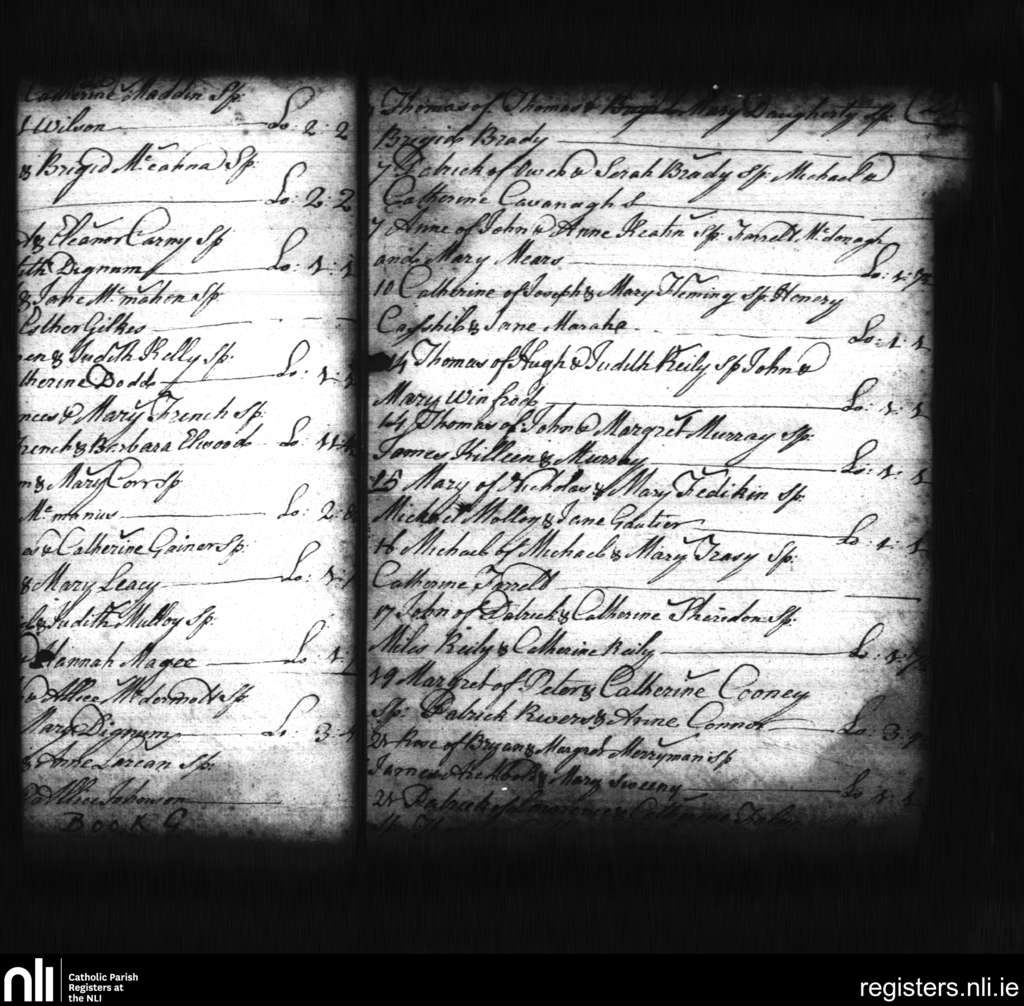 Catherine Maddin Sp:
Wilson Lo: 2: 2
& Brigid Mccanna Sp:
Lo: 2: 2
& Eleanor Carny Sp
Dignum Lo: 1: 1
& Jane Mcmahen Sp
Esther Gilkes
& Judith Kelly Sp:
Dodd Lo: 1: 1
& Mary French Sp:
& Barbara Elwood Lo:
& Mary Corr Sp
Mcmanus Lo: 2:
& Catherine Gainer Sp:
& Mary Leacy Lo: 1: 1
& Judith Mulloy Sp:
Hannah Magee Lo: 1:
& Allice Mcdermott Sp
Mary Dignum Lo: 3:
& Anne Lorcan Sp:
Allice Johnson
BOOK G
Thomas of Thomas & Mary Daugherty Sp:
Brigid Brady
7 Patrick of Owen & Sarah Brady Sp: Michael &
Catherine Cavanagh
7 Anne of John & Anne Keatin Sp: Farrell Mcdonagh
and Mary Mears Lo: 1:
10 Catherine of Joseph & Mary Fleming Sp: Henery
& Jane Lo: 1: 1
14 Thomas of Hugh & Judith Reily Sp John &
Mary Lo: 1: 1
14 Thomas of John & Margret Murray Sp:
James Killeen & Murray Lo: 1: 1
15 Mary of Nicholas & Mary Fedikin Sp:
Michael Molloy & Jane Gautier Lo: 1: 1
16 Michael of Michael & Mary Trasy Sp:
Catherine Farrell
17 John of Patrick & Catherine Sheridon Sp:
Miles Reily & Catherine Reily Lo: 1:
19 Margret of Peter & Catherine Cooney
Sp: Patrick Rivers & Anne Connor Lo: 3:
21 Rose of Bryan & Margret Merryman Sp
James & Mary Sweeny Lo: 1: 1
21 Patrick of & Catherine
nli
Catholic Parish
Registers at
the NLI
registers.nli.ie